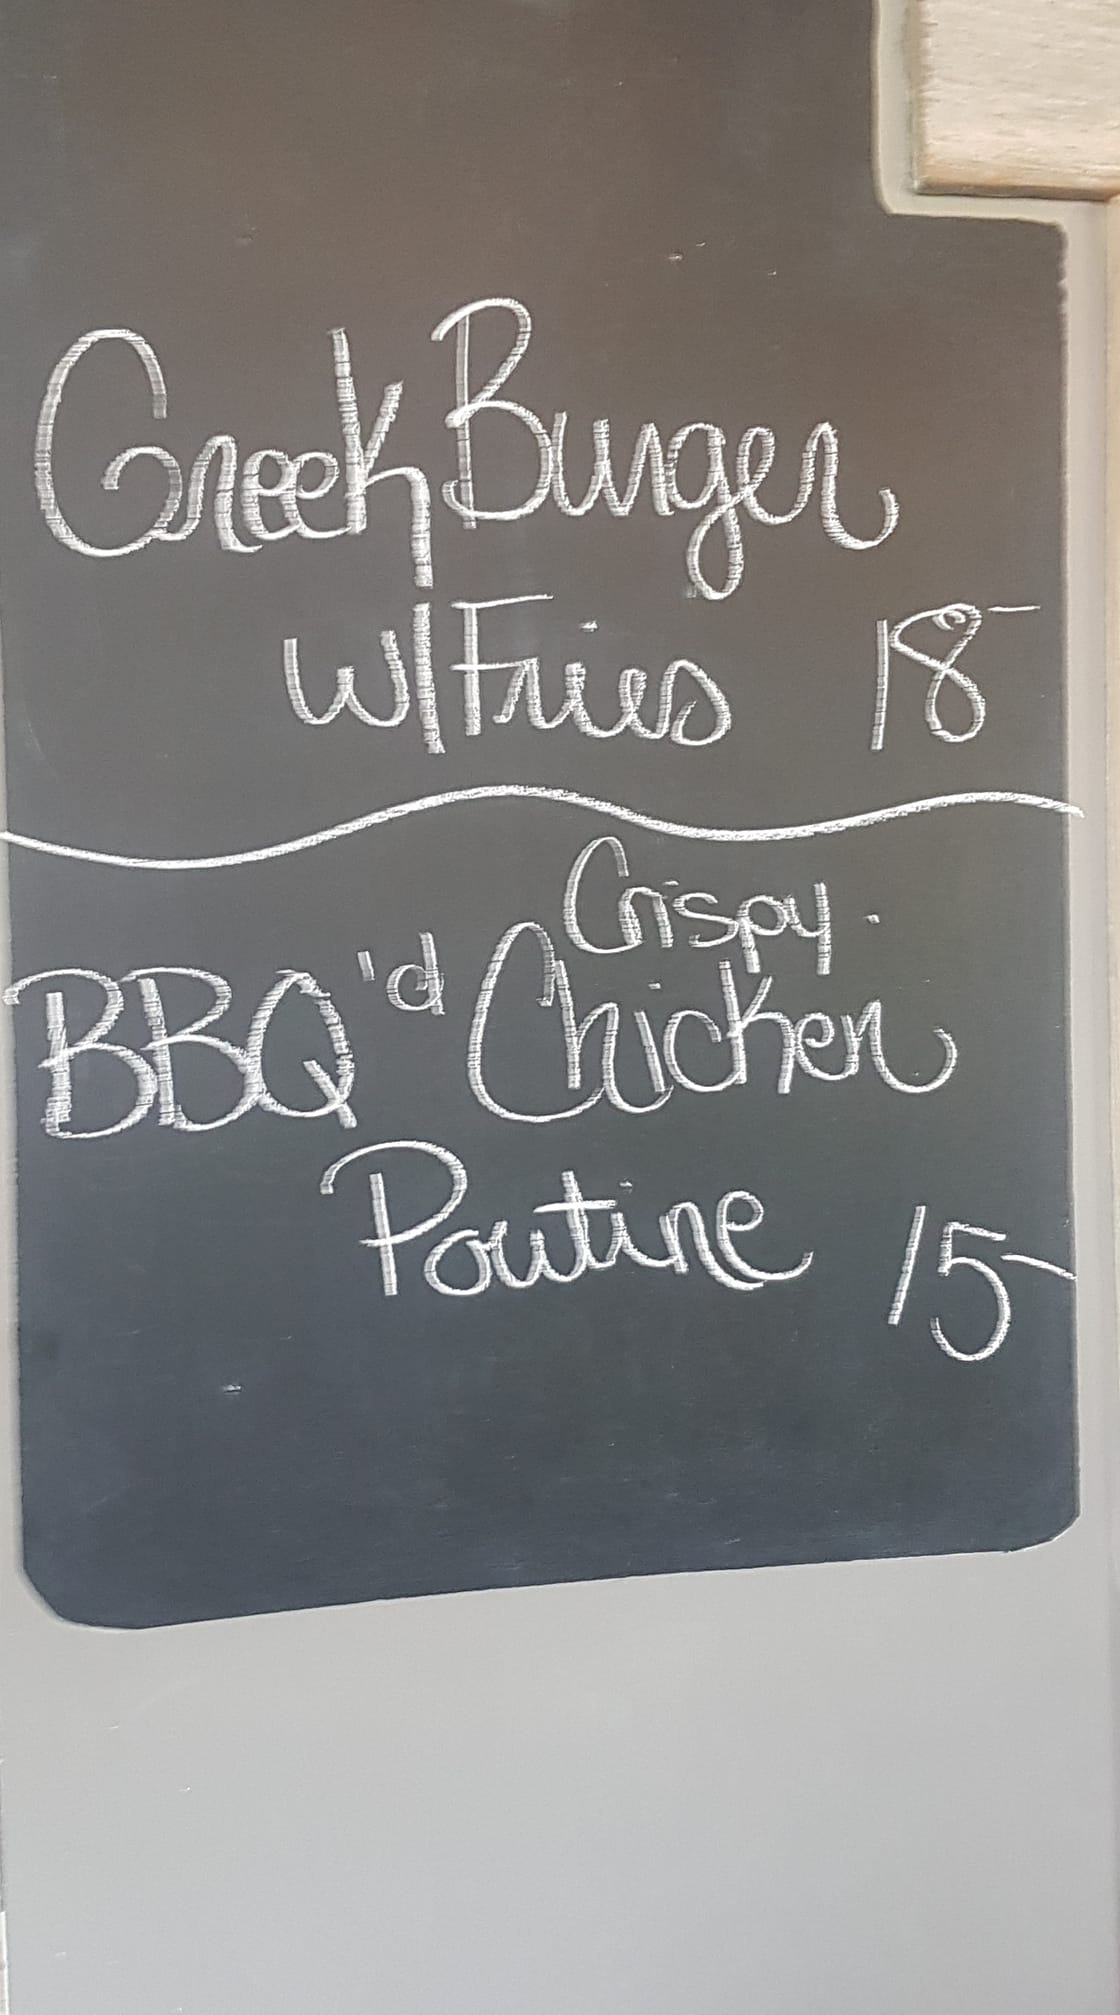 Greek Burger
w/Fries 18-
Crispy
BBQ'd Chicken
Poutine 15-